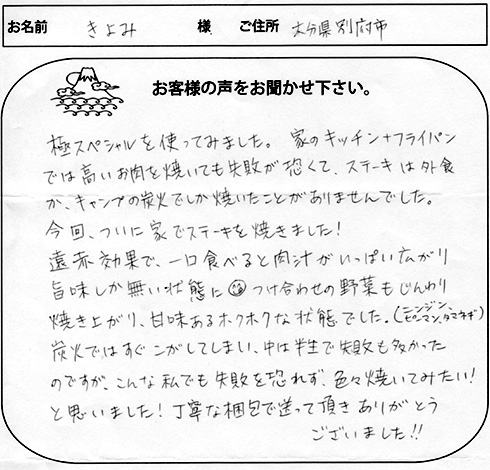 お名前 きよみ 様 ご住所 大分県別府市
お客様の声をお聞かせ下さい。
極スペシャルを使ってみました。 家のキッチン+フライパン
では高いお肉を焼いても失敗が恐くて、ステーキは外食
か、キャンプの炭火でしか焼いたことがありませんでした。
今回、ついに家でステーキを焼きました!
遠赤効果で、一口食べると肉汁がいっぱい広がり
旨味しか無い状態に☺つけ合わせの野菜もじんわり
焼き上がり、甘味あるホクホクな状態でした。(ニンジン、ピーマン、タマネギ)
炭火ではすぐこがしてしまい、中は半生で失敗も多かった
のですが、こんな私でも失敗を恐れず、色々焼いてみたい!
と思いました!丁寧な梱包で送って頂きありがとう
ございました!!